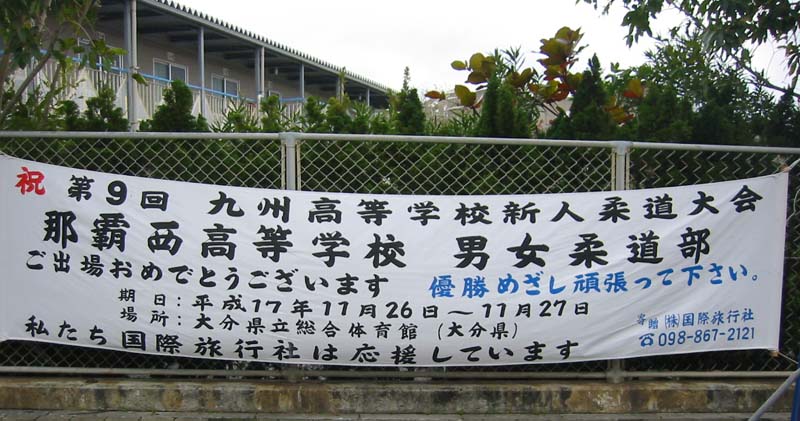 祝 第9回 九州高等学校新人柔道大会
那覇西高等学校 男女柔道部
ご出場おめでとうございます 優勝めざし頑張って下さい。
期日：平成17年11月26日～11月27日
場所：大分県立総合体育館（大分県）
私たち国際旅行社は応援しています
寄贈 ㈱国際旅行社
☎098-867-2121